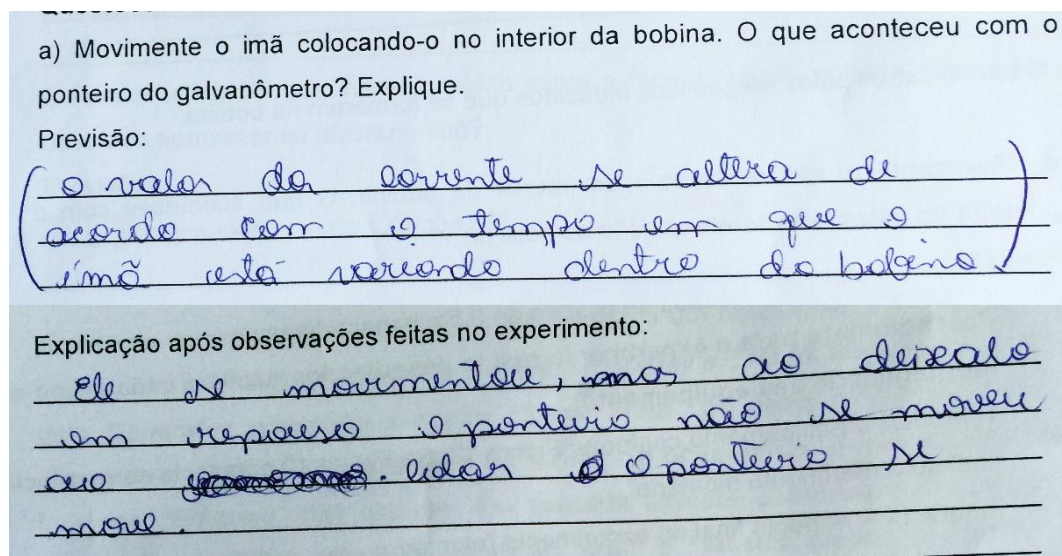 a) Movimente o imã colocando-o no interior da bobina. O que aconteceu com o
ponteiro do galvanômetro? Explique.
Previsão:
(o valor da corrente se altera de
acordo com o tempo em que o
ímã está variando dentro da bobina.)
Explicação após observações feitas no experimento:
Ele se movimentou, mas ao deixalo
em repouso o ponteiro não se moveu
ao o ponteiro se
move